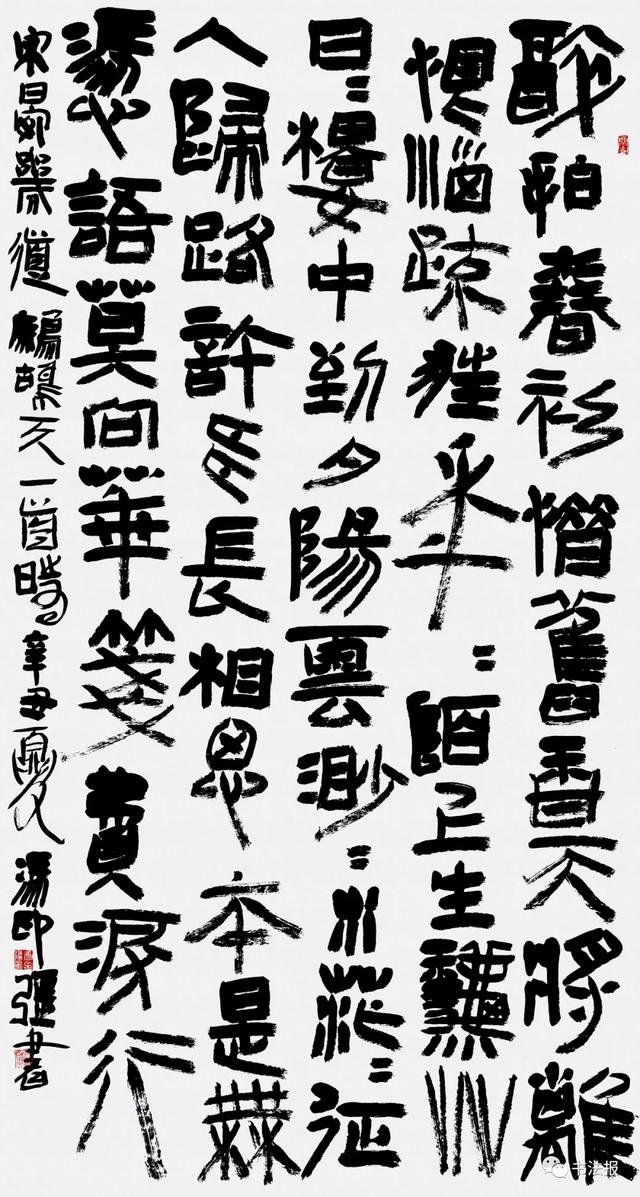 醉拍春衫惜舊香天將離
恨惱疎狂年〻陌上生秋艸
日〻樓中到夕陽雲渺〻水茫〻征
人歸路許多長相思本是無
憑語莫向華箋費淚行
宋晏幾道鷓鴣天一首時辛丑夏湯印強書
书法报